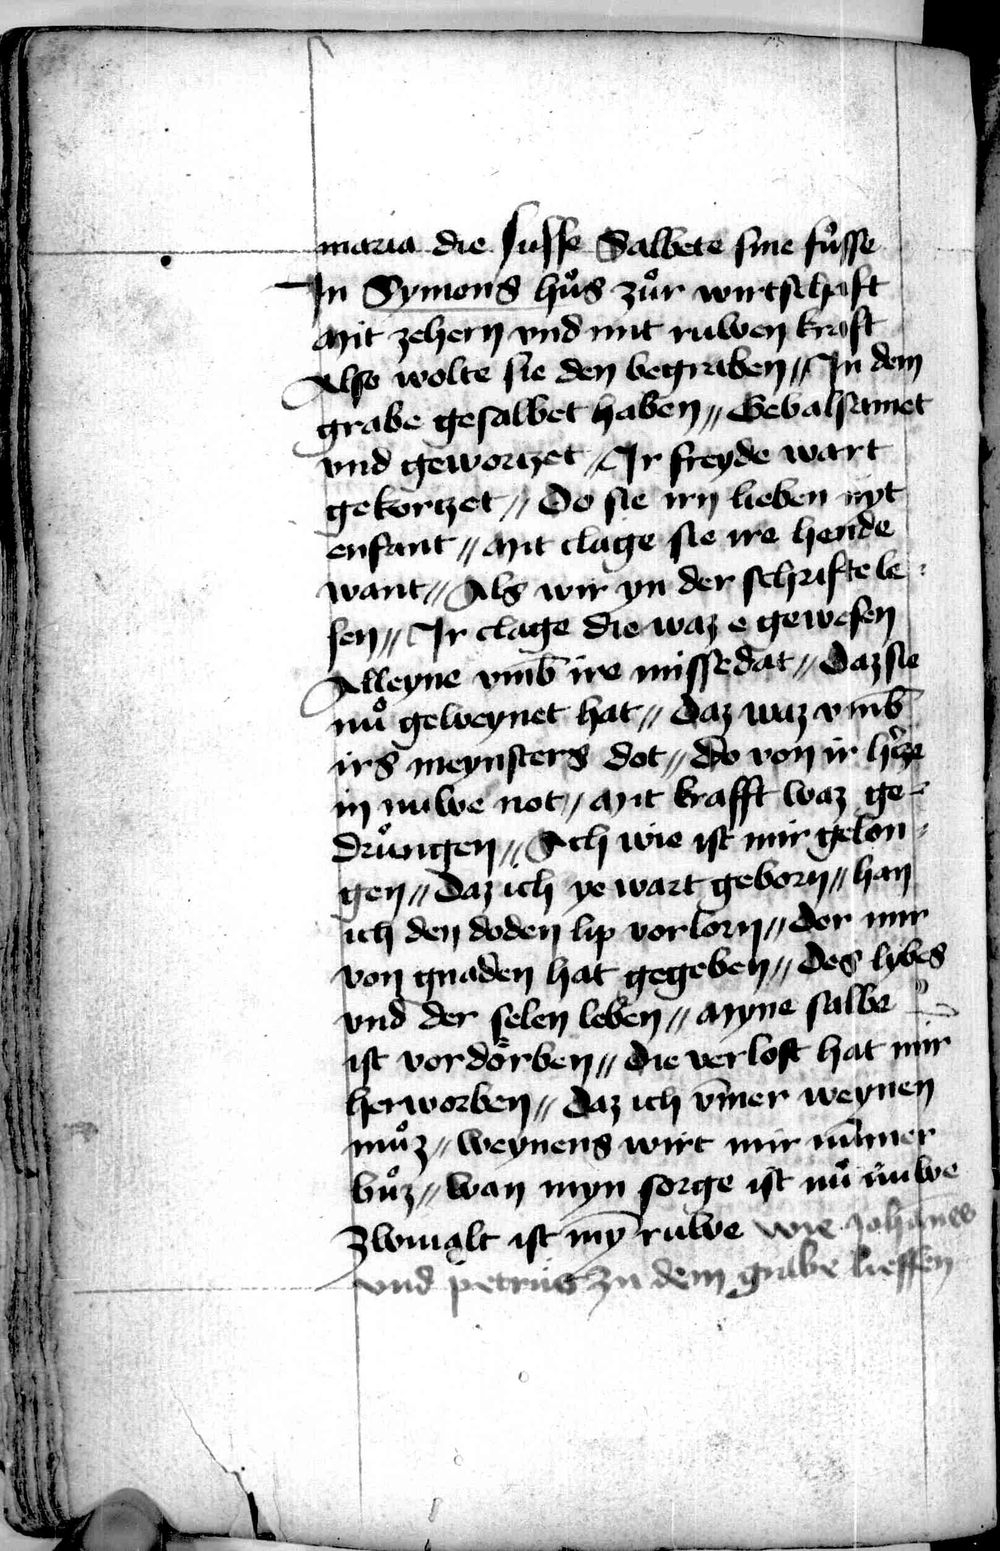 maria die susse Salbete sine fuͦsse
In Symons huͦs zuͦr wirtschaft
Mit zehern vnd mit ruwen kraft
Also wolte sie den begraben // In dem
grabe gesalbet haben // Gebalsamet
vnd geworczet // Ir freyde wart
gekorczet // Do sie irn lieben nyt
enfant // Mit clage sie ire hende
want // Als wir yn der schrifte le⸗
sen // Ir clage die waz e gewesen
Alleyne vmb̄ ire missedat // Daz sie
nuͦ geweynet hat // Daz waz vmb̄
irs meynsters dot // do von ir hʾcze
in nuwe not // Mit krafft waz ge⸗
druͦngen // Ach wie ist mir gelon⸗
gen // Daz ich ye wart geborn // han
ich den doden lip vorlorn // Der mir
von gnaden hat gegeben // Des lybes
vnd der selen leben // Myne salbe
ist vordoͤrben // Die verlost hat mir
herworben // Daz ich v̄mer weynen
muͦz // weynens wirt mir nū̄mer
buͦz // wan myn sorge ist nuͦ nuwe
Zwiualt ist mȳ ruwe wie Johānes
vnd petrus zu dem grabe lieffen